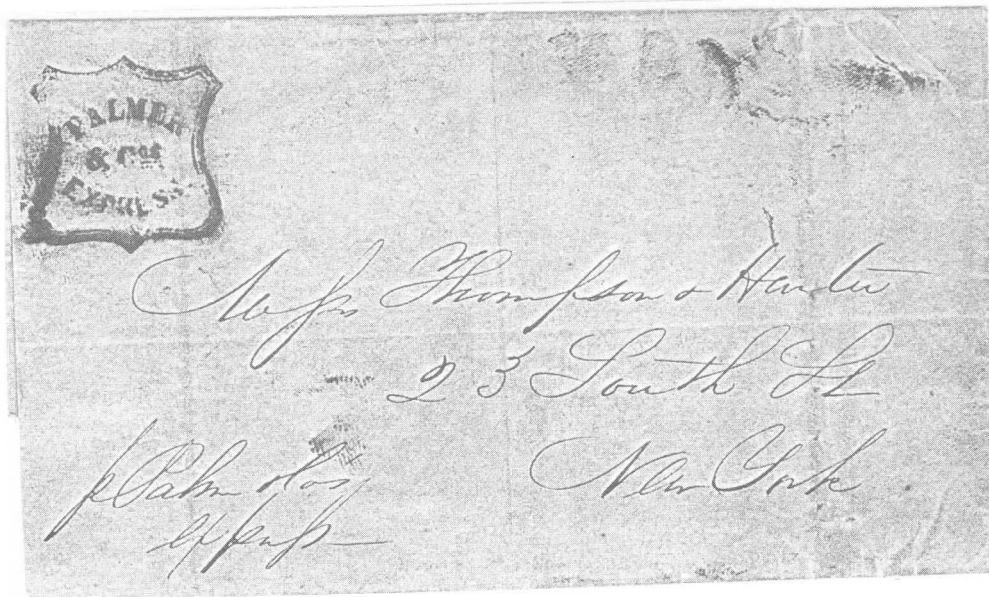 PALMER
& Cos
EXPRESS
Messrs Thompson & Hunter
23 South St
New York
p Palm & Cos
express